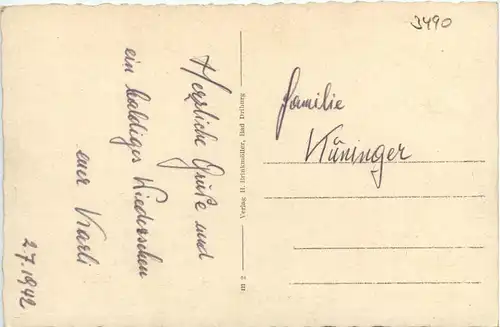 Herzliche Grüße und
ein baldiges Wiedersehen
euer Karli
2.7.1942
Verlag H. Brinkmöller, Bad Driburg
m 2
3490
Familie
Küninger